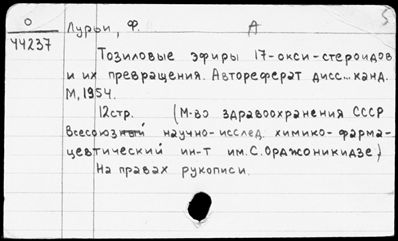 О
44237
Лурьи, Ф. А
5
Тозиловые эфиры 17-окси-стероидов
и их превращения. Автореферат дисс... канд.
М, 1954.
12стр. (М-во здравоохранения СССР
Всесоюзный научно-исслед. химико-фарма-
цевтический ин-т им. С. Орджоникидзе)
На правах рукописи.